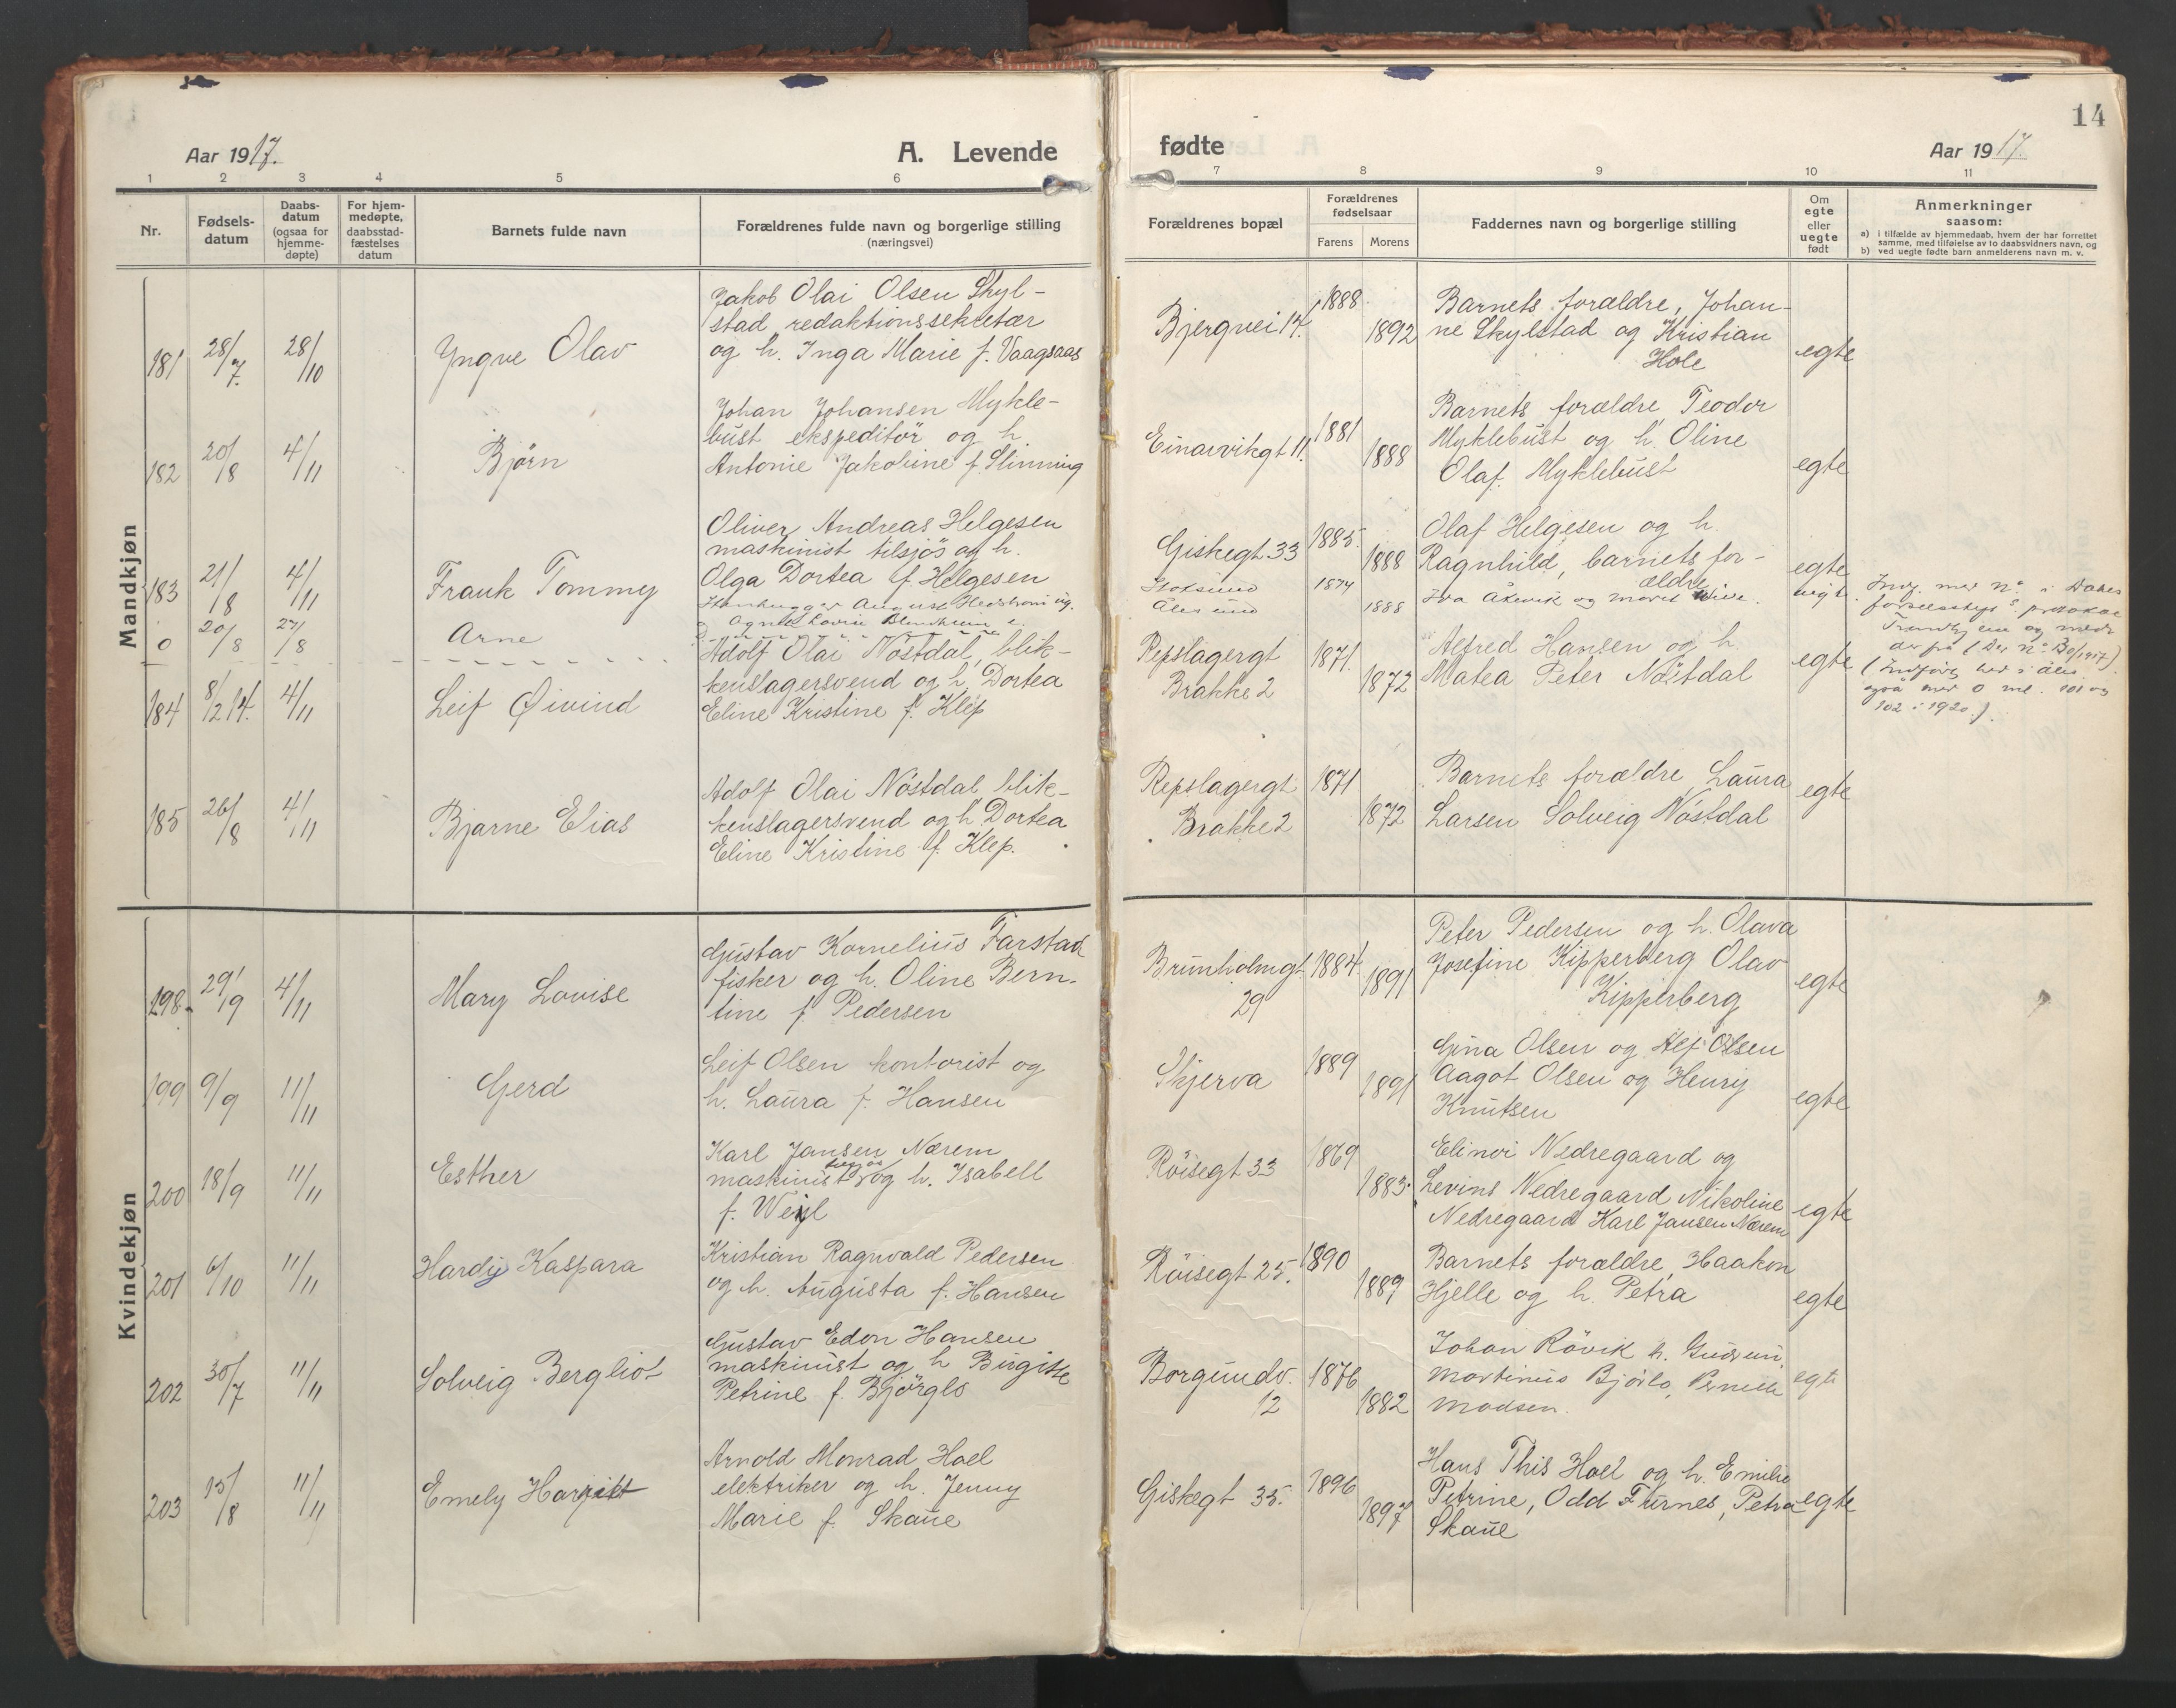 14
Aar 1917.
A. Levende
fødte
Aar 1917.
1 2 3 4 5 6
7 8 9 10 11
Nr.
Fødsels-
datum
Daabs-
datum
(ogsaa for
hjemme-
døpte)
For hjem-
medøpte,
daabsstad-
fæstelses
datum
Barnets fulde navn
Forældrenes fulde navn og borgerlige stilling
(næringsvei)
Forældrenes bopæl
Forældrenes
fødselsaar
Farens Morens
Faddernes navn og borgerlige stilling
Om
egte
eller
uegte
født
Anmerkninger
saasom:
a) i tilfælde av hjemmedaab, hvem der har forrettet
samme, med tilføielse av to daabsvidners navn, og
b) ved uegte fødte barn anmelderens navn m. v.
Mandkjøn
181 28/7. 28/10 Yngve Olav
Jakob Olai Olsen Skyl-
stad redaktionssekretær
og h. Inga Marie f. Vaagsaas
Bjergvei 14. 1888 1892
Barnets forældre, Johan-
ne Skylstad og Kristian
Hole
egte
182 20/8 4/11 Bjørn
Johan Johansen Mykle-
bust ekspeditör og h.
Antonie Jakobine f. Slinning
Einarvikgt 11. 1881 1888
Barnets forældre Teodor
Myklebust og h. Oline
Olaf Myklebust
egte
183 21/8 4/11 Frank Tommy
Oliver Andreas Helgesen
maskinist tilsjös og h.
Olga Dortea f. Helgesen
Giskegt 33 1885. 1888
Olaf Helgesen og h.
Ragnhild, barnets for-
ældre
egte
0 20/8 27/8 Arne
Stenhugger August Hedstrøm ug.
Agnes Lovise
Stoksund 1874
Ålesund 1888
og moret
uegt.
Indf. med n°
protokol
1917).
(Indføres her i
også med 0 ml. 101 og
102 i 1920.).
184 8/2 14. 4/11 Leif Øivind
Adolf Olai Nöstdal, blik-
kenslagersvend og h. Dortea
Eline Kristine f. Klep
Repslagergt
Brakke 2
1871. 1872
Alfred Hansen og h.
Matea Peter Nöstdal
egte
185 26/8 4/11 Bjarne Elias
Adolf Olai Nöstdal blik-
kenslagersvend og h. Dortea
Eline Kristine f. Klep.
Repslagergt
Brakke 2
1871 1872
Barnets forældre, Laura
Larsen Solveig Nöstdal
egte
Kvindekjøn
198 29/9 4/11 Mary Lovise
Gustav Kornelius Farstad
fisker og h. Oline Bern-
tine f. Pedersen
Brunholmgt
29
1884. 1891
Peter Pedersen og h. Olava
Josefine Kipperberg Olav
Kipperberg
egte
199 9/9 11/11 Gerd
Leif Olsen kontorist og
h. Laura f. Hansen
Skjerva 1889 1891
Gina Olsen og Alf Olsen
Aagot Olsen og Henry
Knutsen
egte
200 18/9 11/11 Esther
Karl Jansen Nærem
maskinist og h. Isabell
f. Weyl
Röisegt 33 1869 1883.
Elinor Nedregaard og
Levins Nedregaard Nikoline
Nedregaard Karl Jansen Nærem
egte
201 6/10 11/11 Hardy Kaspara
Kristian Ragnvald Pedersen
og h. Augusta f. Hansen
Röisegt 25. 1890 1889
Barnets forældre, Haakon
Hjelle og h. Petra
egte
202 30/7 11/11 Solveig Bergliot
Gustav Edon Hansen
maskinist og h Birgitte
Petrine f. Björglo
Borgundv.
12
1876 1882
Johan Rövik h. Gudrun
Martinus Björlo, Pernelle
Madsen.
egte
203 15/8 11/11 Emely Hargitt
Arnold Monrad Hoel
elektriker og h. Jenny
Marie f. Skaue
Giskegt 35. 1896 1897
Hans This Hoel og h. Emilie
Petrine, Odd Furnes, Petra
Skaue
egte